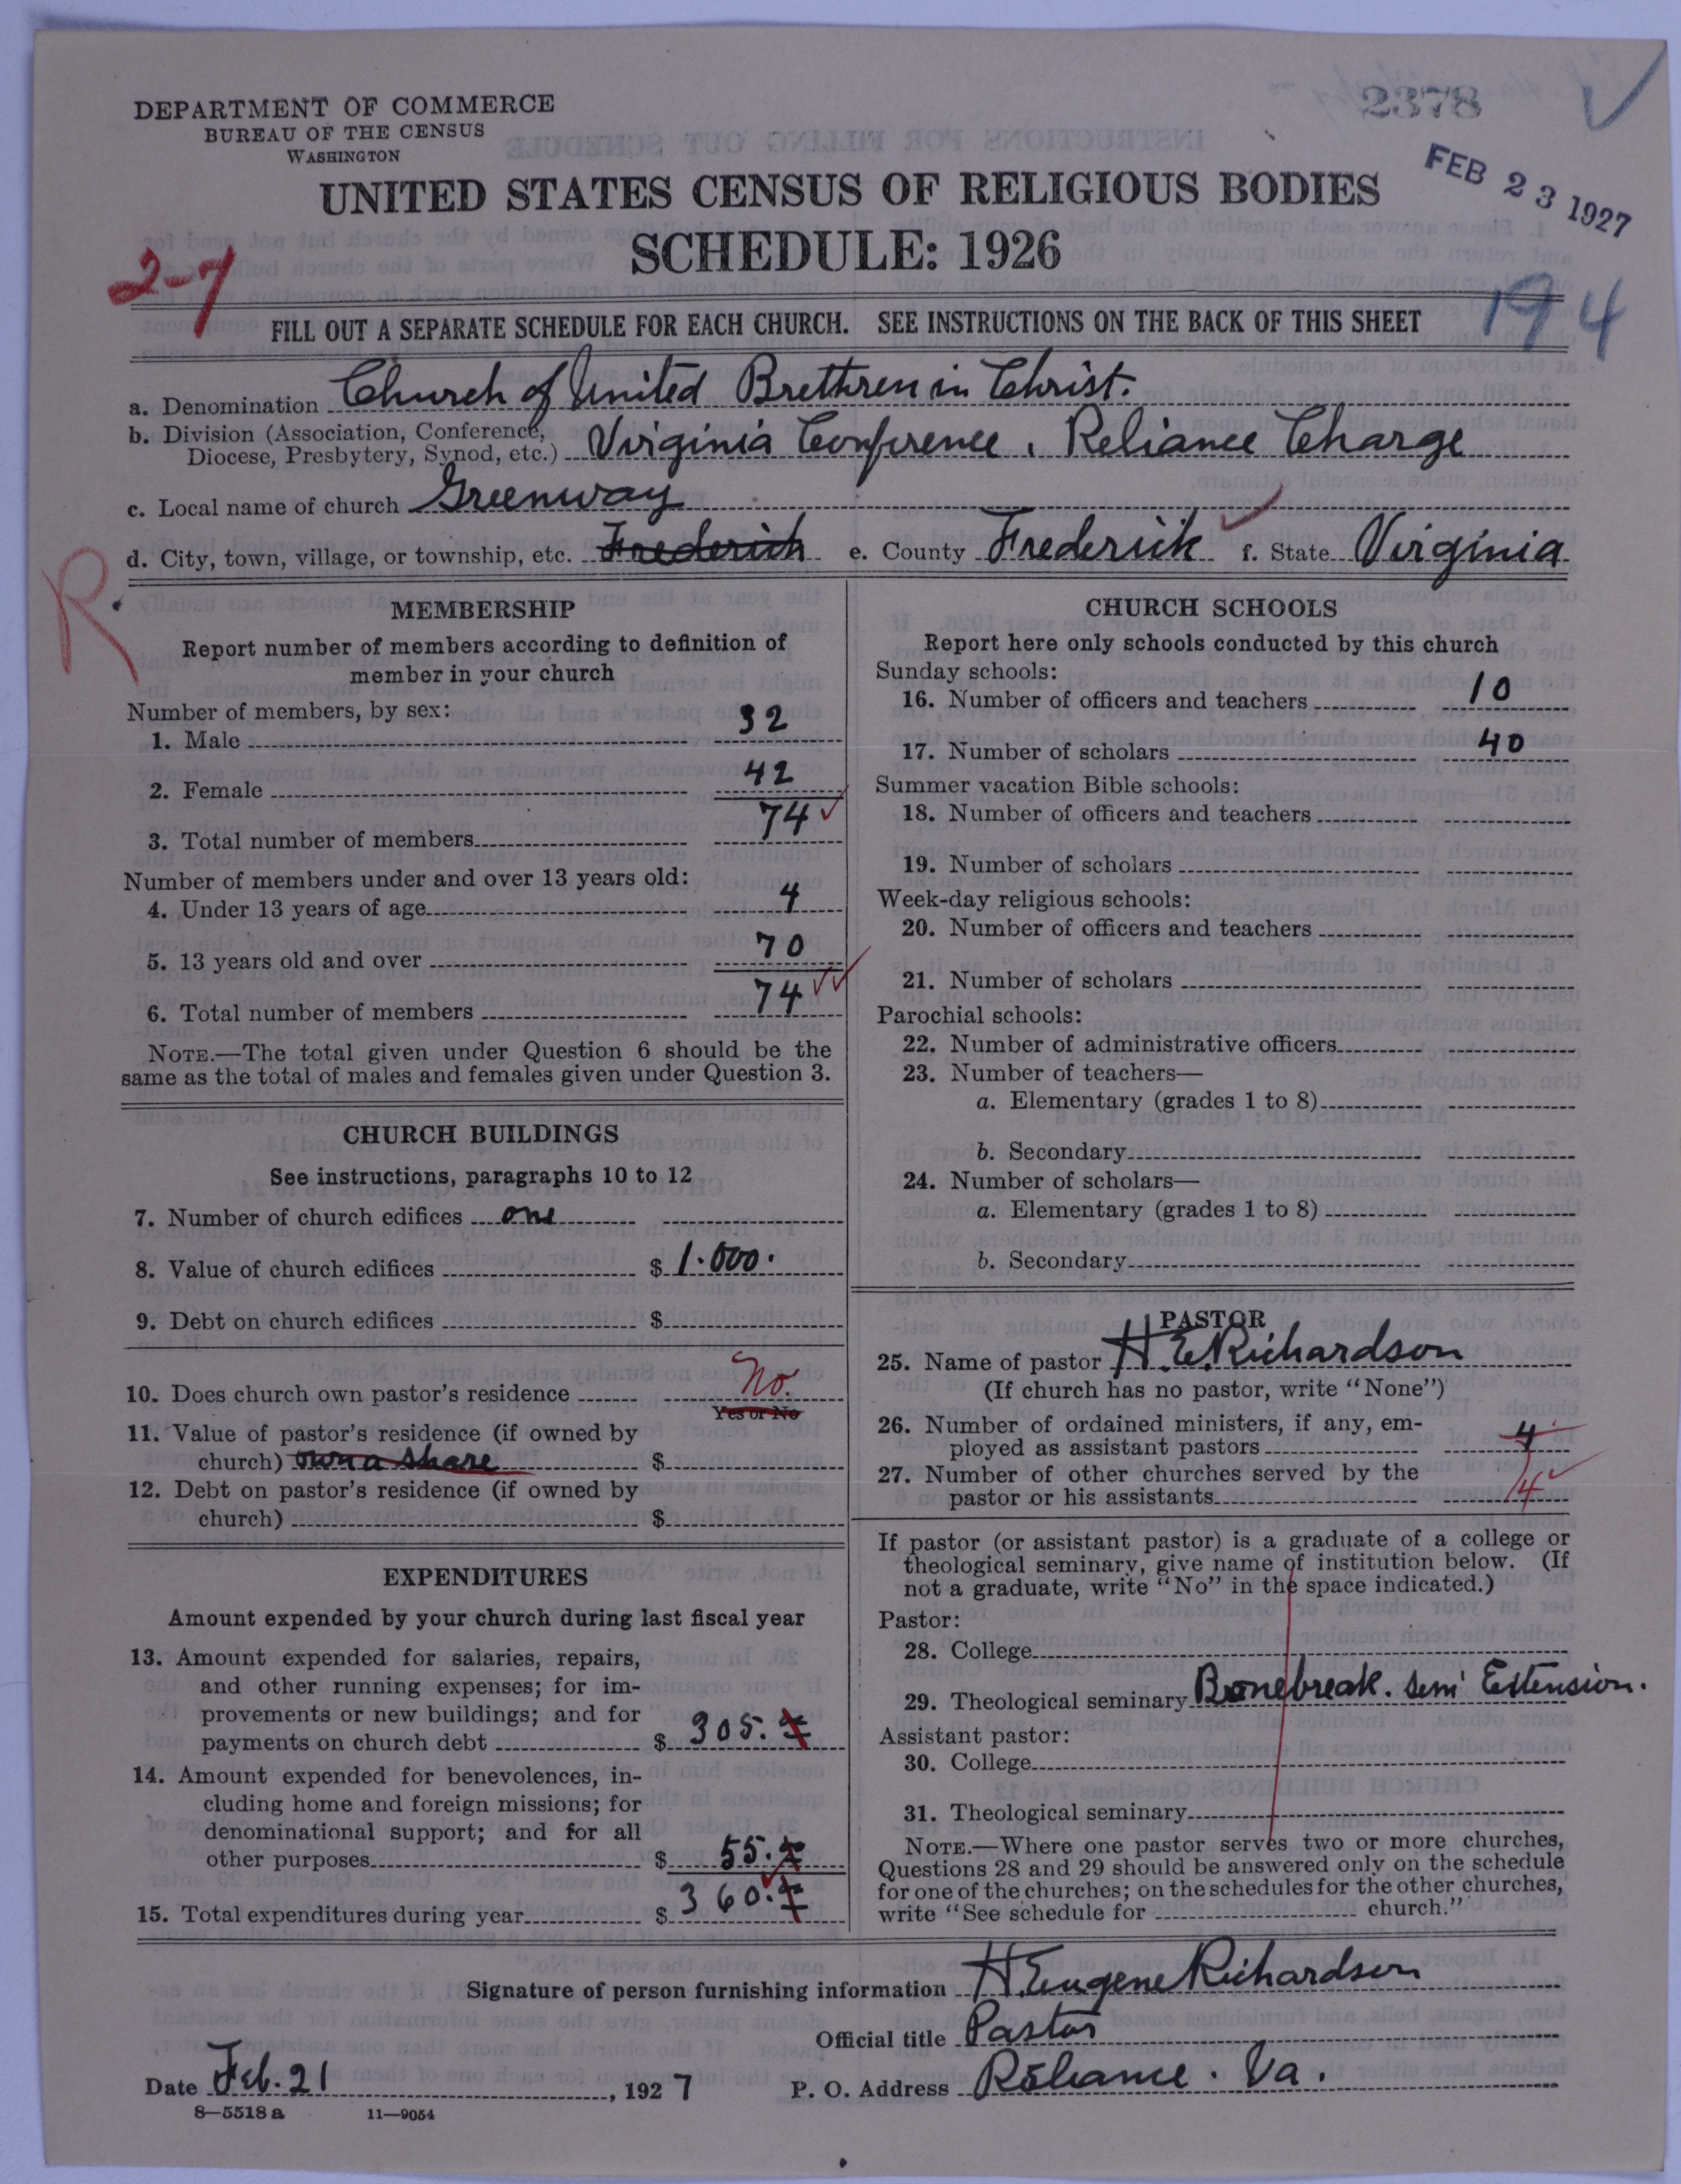 2378
DEPARTMENT OF COMMERCE
BUREAU OF THE CENSUS
WASHINGTON
FEB 23 1927
UNITED STATES CENSUS OF RELIGIOUS BODIES
SCHEDULE: 1926
2-7
194
FILL OUT A SEPARATE SCHEDULE FOR EACH CHURCH. SEE INSTRUCTIONS ON THE BACK OF THIS SHEET
a. Denomination Church of United Brethren in Christ.
b. Division (Association, Conference, Diocese, Presbytery, Synod, etc.) Virginia Conference, Reliance Charge
c. Local name of church Greenway
d. City, town, village, or township, etc. Frederick e. County Frederick f. State Virginia
R
MEMBERSHIP
Report number of members according to definition of
member in your church
Number of members, by sex:
1. Male 32
2. Female 42
3. Total number of members 74
Number of members under and over 13 years old:
4. Under 13 years of age 4
5. 13 years old and over 70
6. Total number of members 74
NOTE.—The total given under Question 6 should be the
same as the total of males and females given under Question 3.
CHURCH BUILDINGS
See instructions, paragraphs 10 to 12
7. Number of church edifices one
8. Value of church edifices $ 1.000.
9. Debt on church edifices $
10. Does church own pastor's residence No.
Yes or No
11. Value of pastor's residence (if owned by
church) own a share $
12. Debt on pastor's residence (if owned by
church) $
EXPENDITURES
Amount expended by your church during last fiscal year
13. Amount expended for salaries, repairs,
and other running expenses; for im-
provements or new buildings; and for
payments on church debt $ 305.
14. Amount expended for benevolences, in-
cluding home and foreign missions; for
denominational support; and for all
other purposes $ 55.
15. Total expenditures during year $ 360.
CHURCH SCHOOLS
Report here only schools conducted by this church
Sunday schools:
16. Number of officers and teachers 10
17. Number of scholars 40
Summer vacation Bible schools:
18. Number of officers and teachers
19. Number of scholars
Week-day religious schools:
20. Number of officers and teachers
21. Number of scholars
Parochial schools:
22. Number of administrative officers
23. Number of teachers—
a. Elementary (grades 1 to 8)
b. Secondary
24. Number of scholars—
a. Elementary (grades 1 to 8)
b. Secondary
PASTOR
25. Name of pastor H. E. Richardson
(If church has no pastor, write "None")
26. Number of ordained ministers, if any, em-
ployed as assistant pastors 4
27. Number of other churches served by the
pastor or his assistants 4
If pastor (or assistant pastor) is a graduate of a college or
theological seminary, give name of institution below. (If
not a graduate, write "No" in the space indicated.)
Pastor:
28. College
29. Theological seminary Bonebreak. Sem Extension.
Assistant pastor:
30. College
31. Theological seminary
NOTE.—Where one pastor serves two or more churches,
Questions 28 and 29 should be answered only on the schedule
for one of the churches; on the schedules for the other churches,
write "See schedule for church."
Signature of person furnishing information H. Eugene Richardson
Official title Pastor
Date Feb. 21, 1927 P. O. Address Reliance. Va.
8—5518 a 11—9054